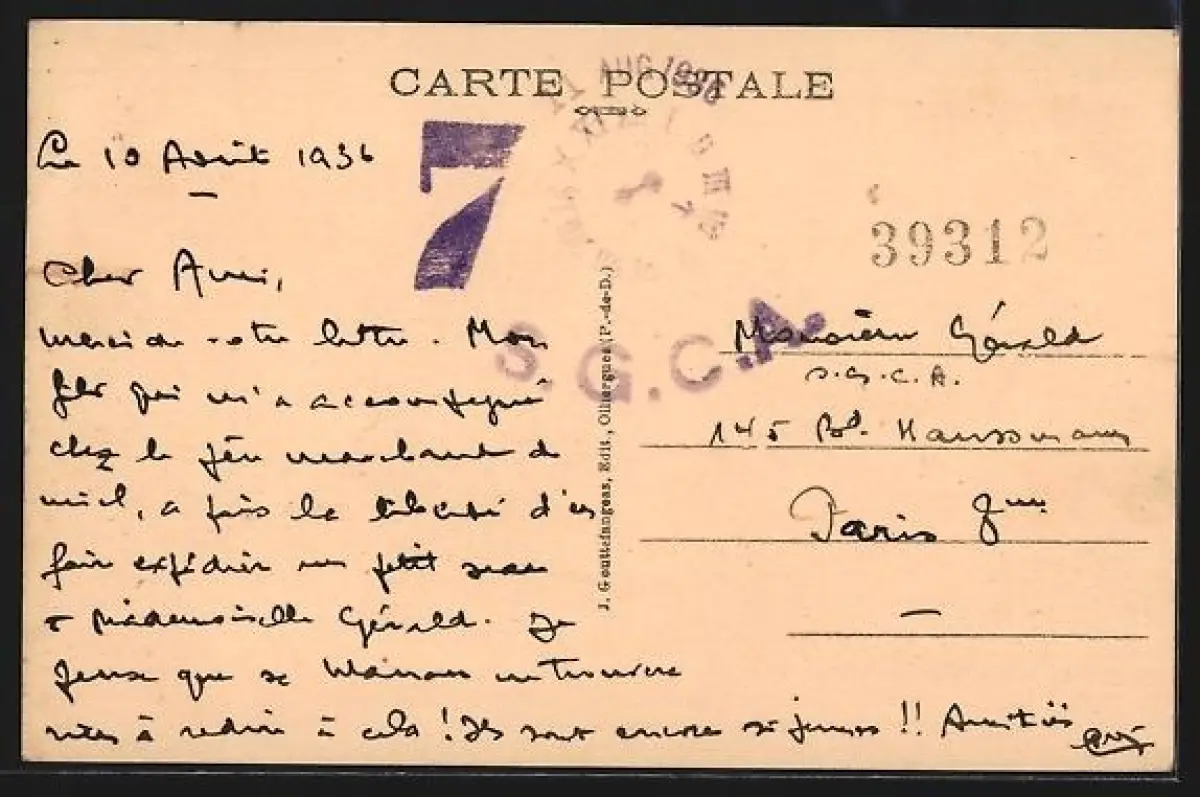 CARTE POSTALE
11 AUG 1936
Le 10 Août 1936
7
39312
Cher Ami,
merci de votre lettre. Mon
fils qui m'a accompagné
chez le marchand de
miel, a pris la liberté d'en
faire expédier un petit seau
à Mademoiselle Gérald. Je
pense que sa Maman ne trouvera
rien à redire à cela ! Ils sont encore si jeunes !! Amitiés
S.G.C.A.
J. Gouttefangeas, Edit., Olliergues (P.-de-D.)
Monsieur Gérald
S.G.C.A.
145 Bd. Haussmann
Paris 8me